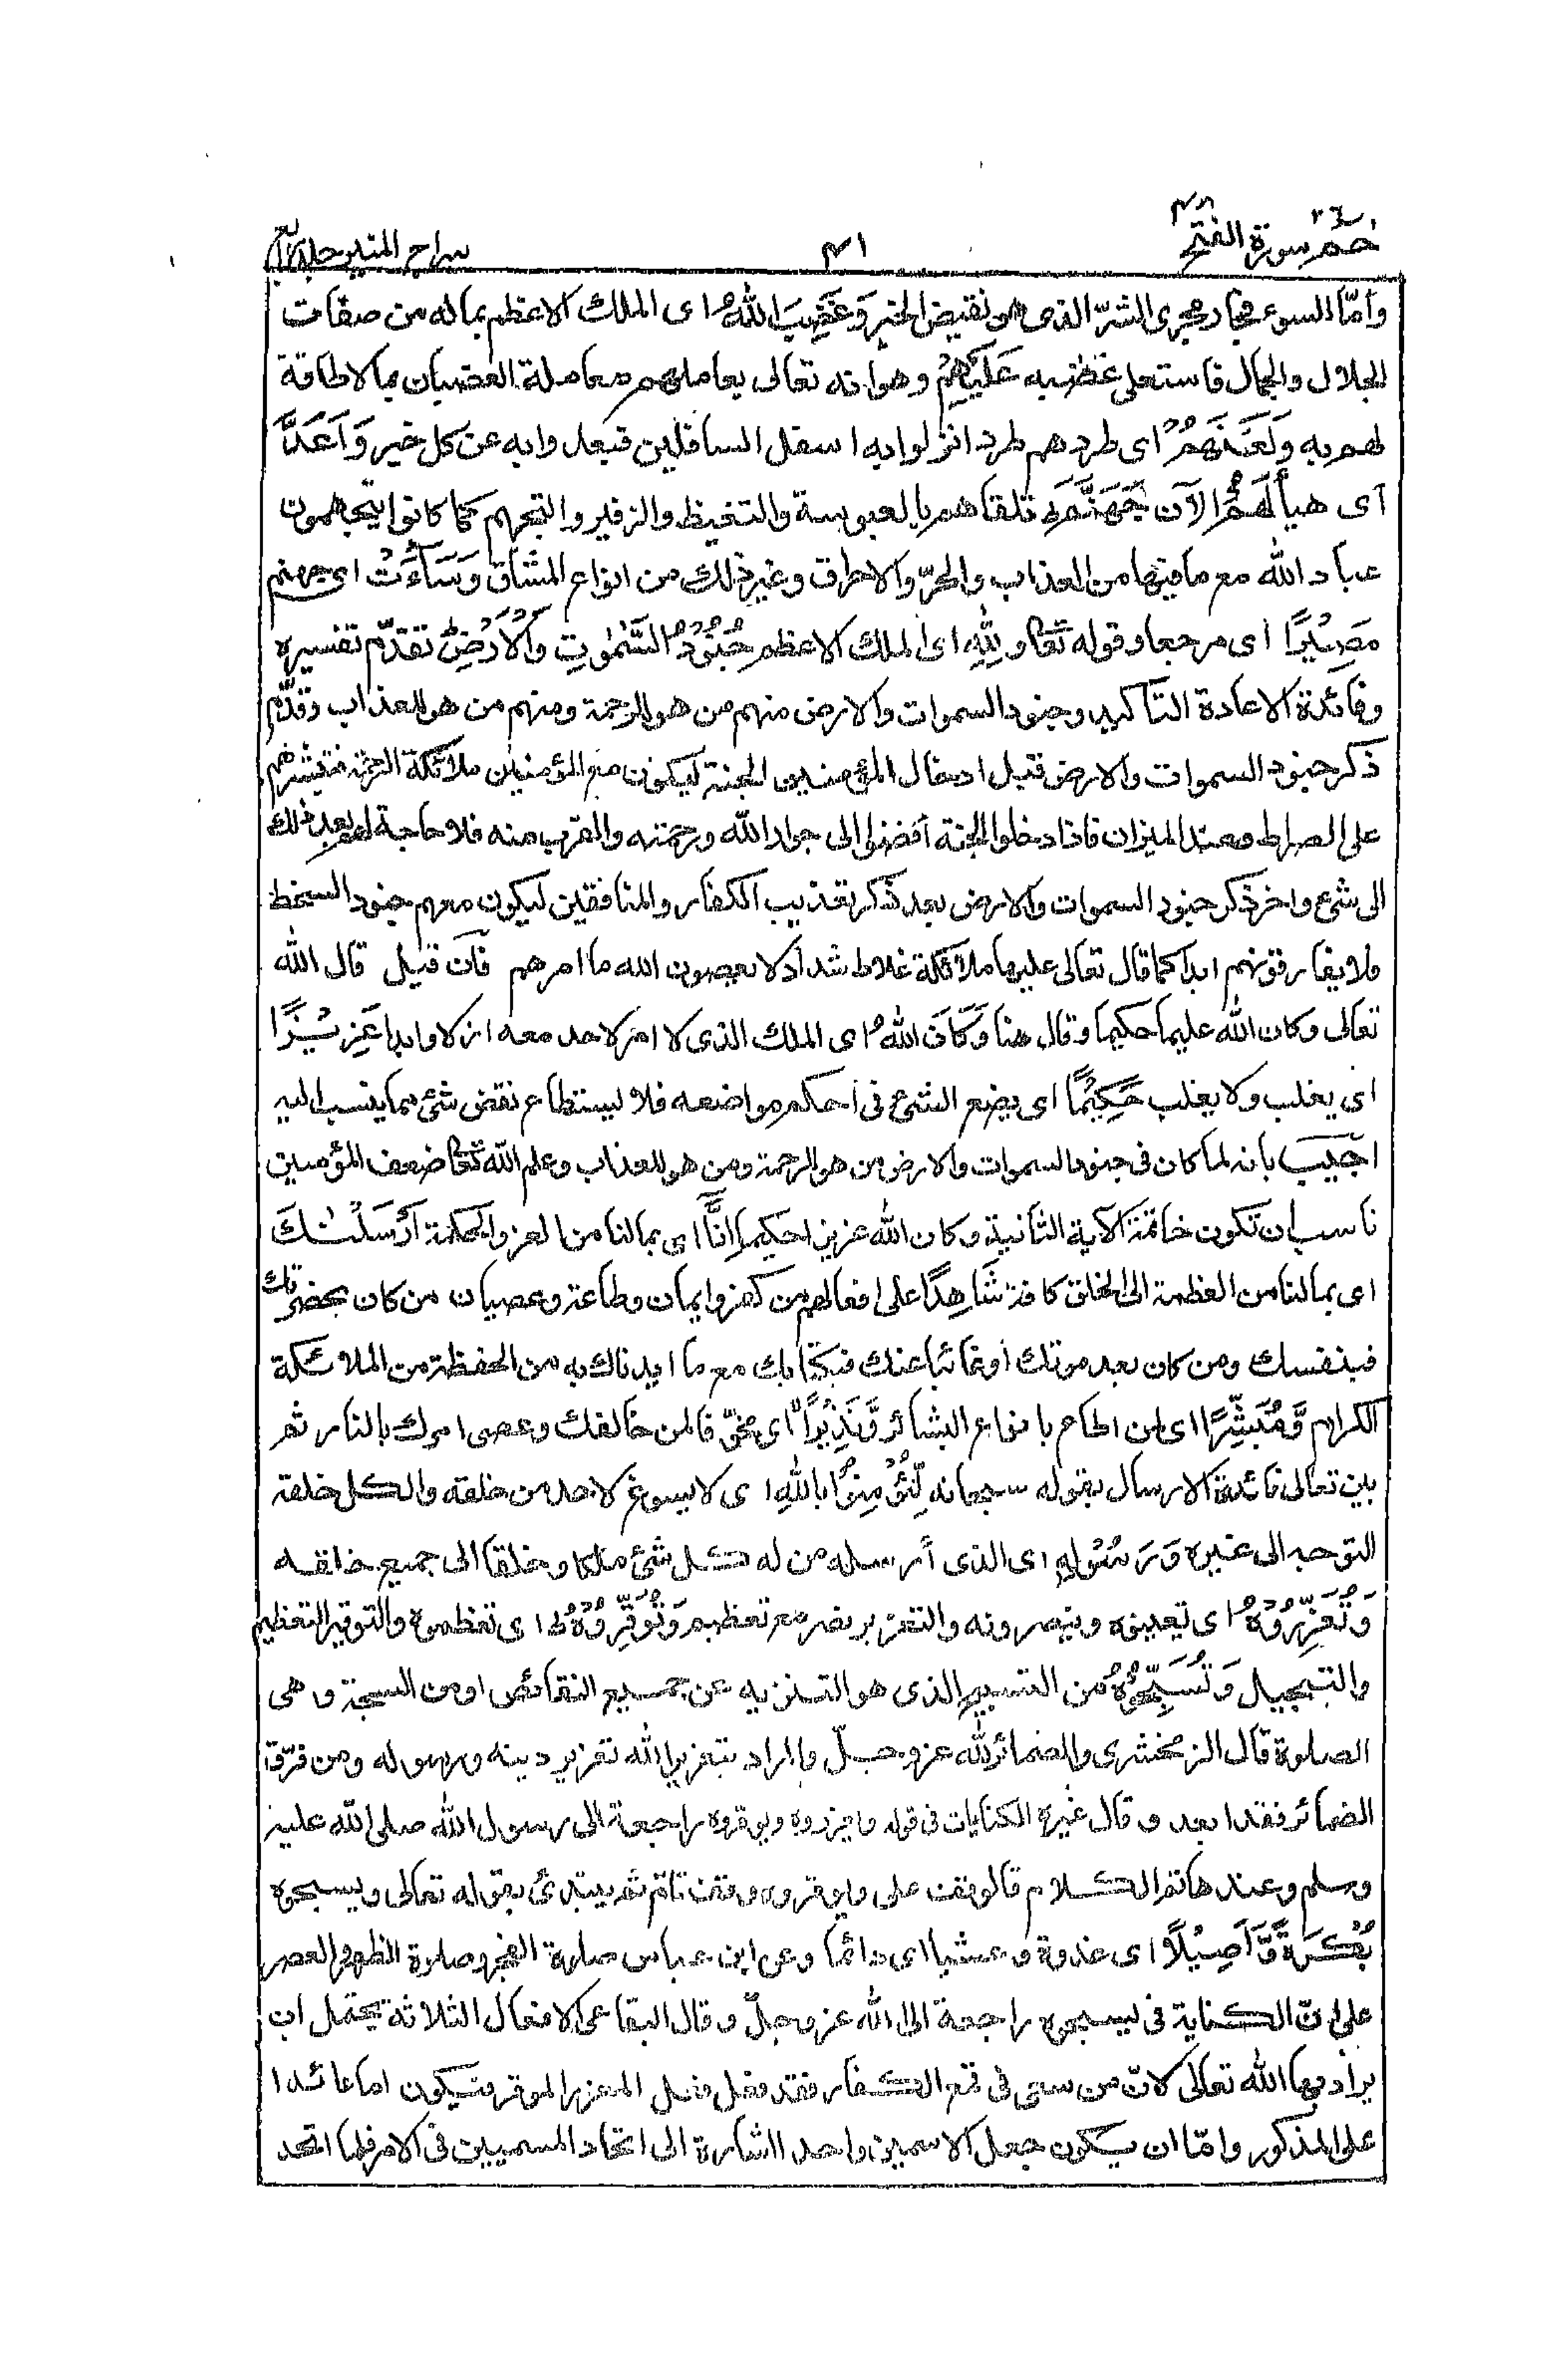 حٰم ٢٦ سورة الفتح ٤٨
٤١
سراج المنير جلد رابع
وأمّا السوء فجار مجرى الشرّ الذى هو نقيض الخير وَغَضِبَ اللهُ اى الملك الاعظم بماله من صفات
الجلال والجمال فاستعلى غضبه عَلَيْهِمْ وهو انه تعالى يعاملهم معاملة الغضبان بما لا طاقة
لهم به وَلَعَنَهُمْ اى طردهم طردا نزلوا به اسفل السافلين فبعدوا به عن كل خير وَاَعَدَّ
اى هيأ لَهُمْ الآن جَهَنَّمَ ط تلقاهم بالعبوسة والتغيظ والزفير والتجهم كما كانوا يتجهمون
عباد الله مع ما فيها من العذاب والحرّ والاحراق وغير ذلك من انواع المشاق وَسَآءَتْ اى جهنم
مَصِيْرًا اى مرجعا وقوله تعالى وَلِلّٰهِ اى الملك الاعظم جُنُوْدُ السَّمٰوٰتِ وَالْاَرْضِ ط تقدّم تفسيره
وفائدة الاعادة التأكيد وجنود السموات والارض منهم من هو للرحمة ومنهم من هو للعذاب وقدّم
ذكر جنود السموات والارض قبل ادخال المؤمنين الجنة ليكون مع المؤمنين ملائكة الرحمة فتبشرهم
على الصراط وعند الميزان فاذا دخلوا الجنة أفضوا الى جوار الله ورحمته والقرب منه فلا حاجة لهم بعد ذلك
الى شئ واخر ذكر جنود السموات والارض بعد ذكر تعذيب الكفار والمنافقين ليكون معهم جنود السخط
فلا يفارقونهم ابدا كما قال تعالى عليها ملائكة غلاظ شداد لا يعصون الله ما امرهم فان قيل قال الله
تعالى وكان الله عليما حكيما وقال هنا وَكَانَ اللهُ اى الملك الذى لا امر لاحد معه ازلا وابدا عَزِيْزًا
اى يغلب ولا يغلب حَكِيْمًا اى يضع الشئ فى احكم مواضعه فلا يستطاع نقض شئ مما ينسب اليه
اجيب بانه لما كان فى جنود السموات والارض من هو للرحمة ومن هو للعذاب وعلم الله تعالى ضعف المؤمنين
ناسب ان تكون خاتمة الآية الثانية وكان الله عزيزا حكيما اِنَّآ اى بمالنا من العز والحكمة اَرْسَلْنٰكَ
اى بمالنا من العظمة الى الخلق كافة شَاهِدًا على افعالهم من كفر وايمان وطاعة وعصيان من كان بحضرتك
فبنفسك ومن كان بعد موتك أو غائبا عنك فبكتابك مع ما ايدناك به من الحفظة من الملائكة
الكرام وَّمُبَشِّرًا اى لمن اطاع بانواع البشائر وَّنَذِيْرًا اى مخوّفا لمن خالفك وعصى امرك بالنار ثم
بين تعالى فائدة الارسال بقوله سبحانه لِّتُؤْمِنُوْا بِاللهِ اى لا يسوغ لاحد من خلقه والكل خلقه
التوجه الى غيره وَرَسُوْلِهٖ اى الذى أرسله من له كل شئ ملكا وخلقا الى جميع خلقه
وَتُعَزِّرُوْهُ اى تعينوه وتنصرونه والتعزير نصر مع تعظيم وَتُوَقِّرُوْهُ ط اى تعظموه والتوقير التعظيم
والتبجيل وَتُسَبِّحُوْهُ من التسبيح الذى هو التنزيه عن جميع النقائص او من السبحة وهى
الصلوة قال الزمخشرى والضمائر لله عز وجلّ والمراد بتعزير الله تعزير دينه ورسوله ومن فرّق
الضمائر فقد ابعد وقال غيره الكنايات فى قوله ويعزروه ويوقروه راجعة الى رسول الله صلى الله عليه
وسلم وعندها تم الكلام فالوقف على ويوقروه وقف تامّ ثم يبتدئ بقوله تعالى ويسبحوه
بُكْرَةً وَّاَصِيْلًا اى غدوة وعشيا اى دائما وعن ابن عباس صلوة الفجر وصلوة الظهر والعصر
على انّ الكناية فى يسبحوه راجعة الى الله عز وجلّ وقال البقاعى الافعال الثلاثة يحتمل ان
يراد بها الله تعالى لانّ من سعى فى قمع الكفار فقد فعل فعل المعزر الموقر فيكون اما عائدا
على المذكور وامّا ان يكون جعل الاسمين واحدا اشارة الى اتحاد المسميين فى الامر فلما اتحد